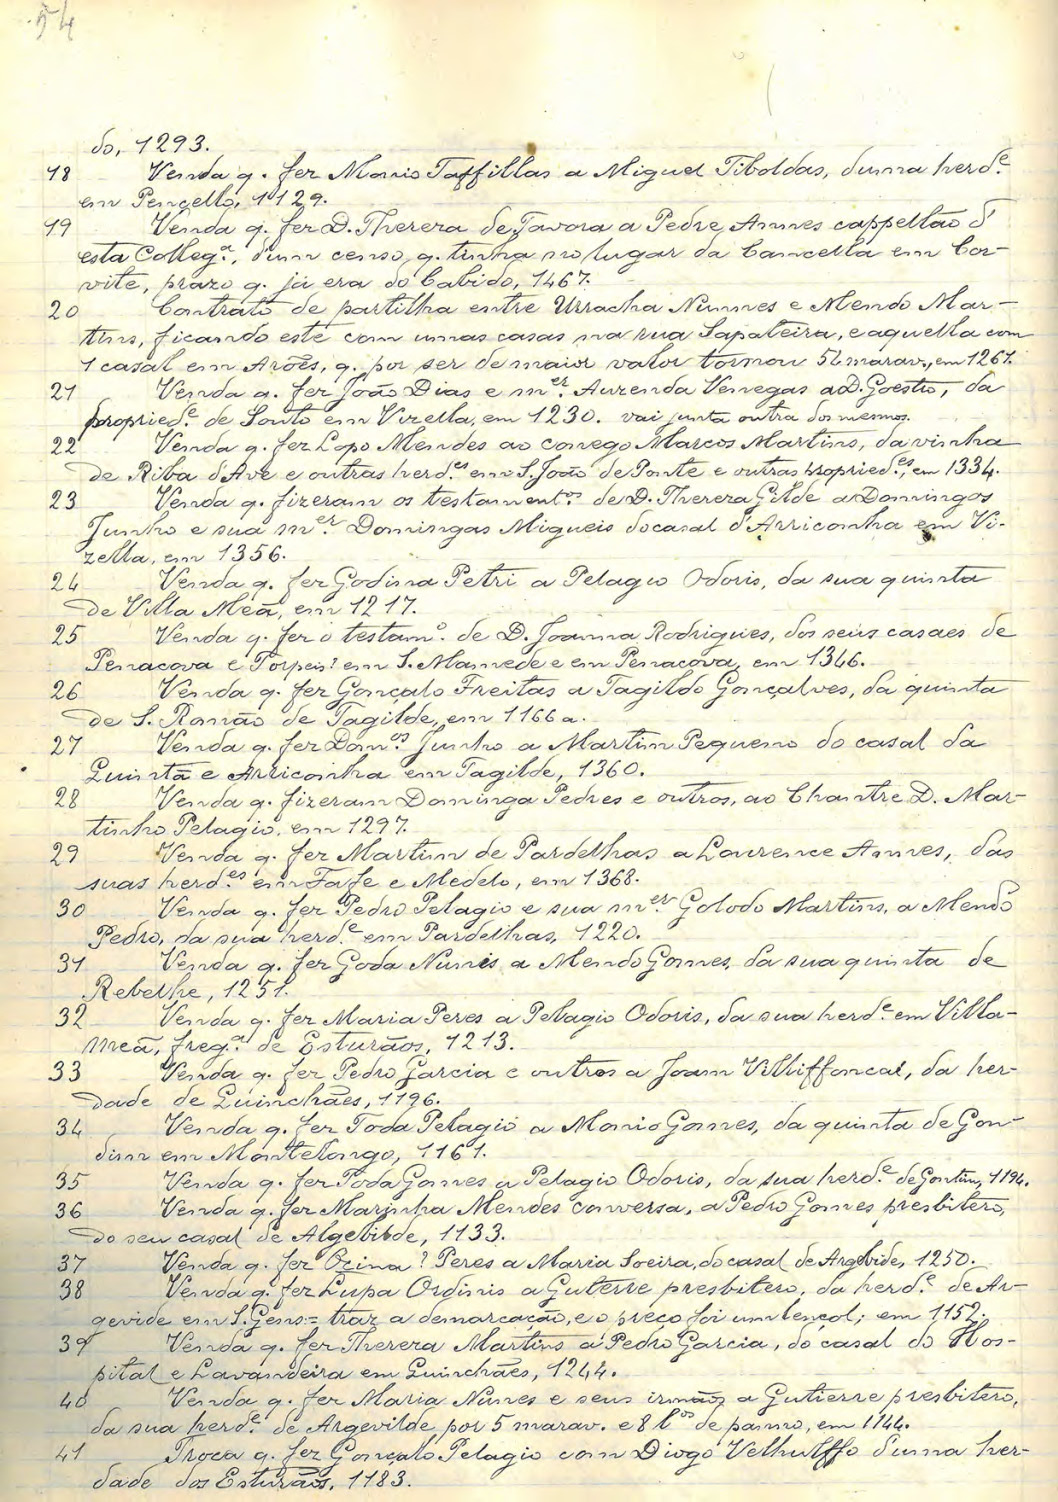 54
do, 1293.
18 Venda q. fez Monio Taffillas a Miguel Tiboldas, duma herd.e
em Pencello, 1129.
19 Venda q. fez D. Thereza de Tavora a Pedre Annes cappellão d'
esta Colleg.a, dum censo, q. tinha no lugar da Cancella em Cor-
vite, prazo q. já era do Cabido, 1467.
20 Contrato de partilha entre Urracha Nunnes e Mendo Mar-
tins, ficando este com umas casas na rua Sapateira, e aquella com
1 casal em Arões, q. por ser de maior valor tornou 52 marav., em 1267.
21 Venda q. fez João Dias e m.er Aurenda Venegas a D. Goesto, da
propried.e de Souto em Vizella, em 1230. vai junta outra dos mesmos.
22 Venda q. fez Lopo Mendes ao conego Marcos Martins, da vinha
de Riba d'Ave e outras herd.es em S. João de Ponte e outras propried.es, em 1334.
23 Venda q. fizeram os testament.os de D. Thereza Gil de a Domingos
Junho e sua m.er Domingas Migueis do casal d'Arriconha em Vi-
zella, em 1356.
24 Venda q. fez Godina Petri a Pelagio Odoris, da sua quinta
de Villa Meã, em 1217.
25 Venda q. fez o testam.o de D. Joanna Rodrigues, dos seus casaes de
Penacova e Torpeis? em S. Mamede e em Penacova, em 1346.
26 Venda q. fez Gonçalo Freitas a Tagildo Gonçalves, da quinta
de S. Romão de Tagilde, em 1166 a.
27 Venda q. fez Dom.os Junho a Martim Pequeno do casal da
Quintã e Arriconha em Tagilde, 1360.
28 Venda q. fizeram Dominga Pedres e outros, ao Chantre D. Mar-
tinho Pelagio, em 1297.
29 Venda q. fez Martim de Pardelhas a Lourence Annes, das
suas herd.es em Fafe e Medelo, em 1368.
30 Venda q. fez Pedro Pelagio e sua m.er Golodo Martins, a Mendo
Pedro, da sua herd.e em Pardelhas, 1220.
31 Venda q. fez Goda Nunis a Mendo Gomes da sua quinta de
Rebelhe, 1251.
32 Venda q. fez Maria Peres a Pelagio Odoris, da sua herd.e em Villa-
meã, freg.a de Esturãos, 1213.
33 Venda q. fez Pedro Garcia e outros a Joam Villiffoncal, da her-
dade de Quinchães, 1196.
34 Venda q. fez Toda Pelagio a Monio Gomes, da quinta de Gon-
dim em Montelongo, 1161.
35 Venda q. fez Toda Gomes a Pelagio Odoris, da sua herd.e de Gontim, 1194.
36 Venda q. fez Marinha Mendes conversa, a Pedro Gomes presbitero,
do seu casal de Algebilde, 1133.
37 Venda q. fez Ozina? Peres a Maria Soeira, do casal de Argebide, 1250.
38 Venda q. fez Lupa Ordinis a Guterre presbitero, da herd.e de Ar-
gevide em S. Gens = traz a demarcação, e o preço foi um lençol; em 1152.
39 Venda q. fez Thereza Martins a Pedro Garcia, do casal do Hos-
pital e Lavandeira em Quinchães, 1244.
40 Venda q. fez Maria Nunes e seus irmãos a Gutierre presbitero,
da sua herd.e de Argevilde, por 5 marav. e 8 b.os de panno, em 1144.
41 Troca q. fez Gonçalo Pelagio com Diogo Velhulffo duma her-
dade dos Esturãos, 1183.